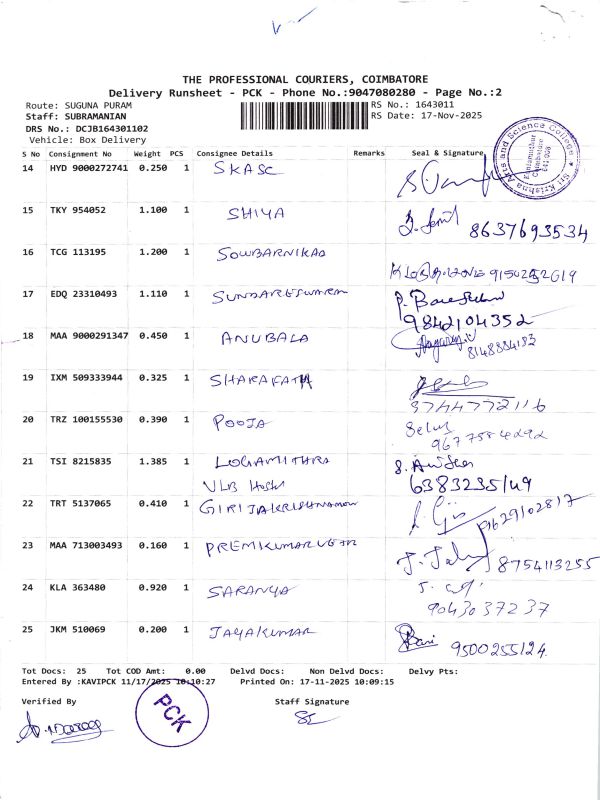 THE PROFESSIONAL COURIERS, COIMBATORE
Delivery Runsheet - PCK - Phone No.:9047080280 - Page No.:2
Route: SUGUNA PURAM
RS No.: 1643011
Staff: SUBRAMANIAN
RS Date: 17-Nov-2025
DRS No.: DCJB164301102
Vehicle: Box Delivery
Sri Krishna Arts and Science College
Kuniamuthur
Coimbatore
641 008
S No Consignment No Weight PCS Consignee Details Remarks Seal & Signature
14 HYD 9000272741 0.250 1 SKASC
15 TKY 954052 1.100 1 SHIYA
8637693534
16 TCG 113195 1.200 1 SOWBARNIKAA
17 EDQ 23310493 1.110 1 SUNDARESWARAN
9842104352
18 MAA 9000291347 0.450 1 ANUBALA
8148884183
19 IXM 509333944 0.325 1 SHARAFATH
9744772116
20 TRZ 100155530 0.390 1 POOJA
21 TSI 8215835 1.385 1 LOGAMITHRA
VLB Hostel
6383235149
22 TRT 5137065 0.410 1
23 MAA 713003493 0.160 1
8754113255
24 KLA 363480 0.920 1 SARANYA
9043037237
25 JKM 510069 0.200 1 JAYAKUMAR
9500255124
Tot Docs: 25 Tot COD Amt: 0.00 Delvd Docs: Non Delvd Docs: Delvy Pts:
Entered By :KAVIPCK 11/17/2025 10:10:27 Printed On: 17-11-2025 10:09:15
Verified By Staff Signature
PCK